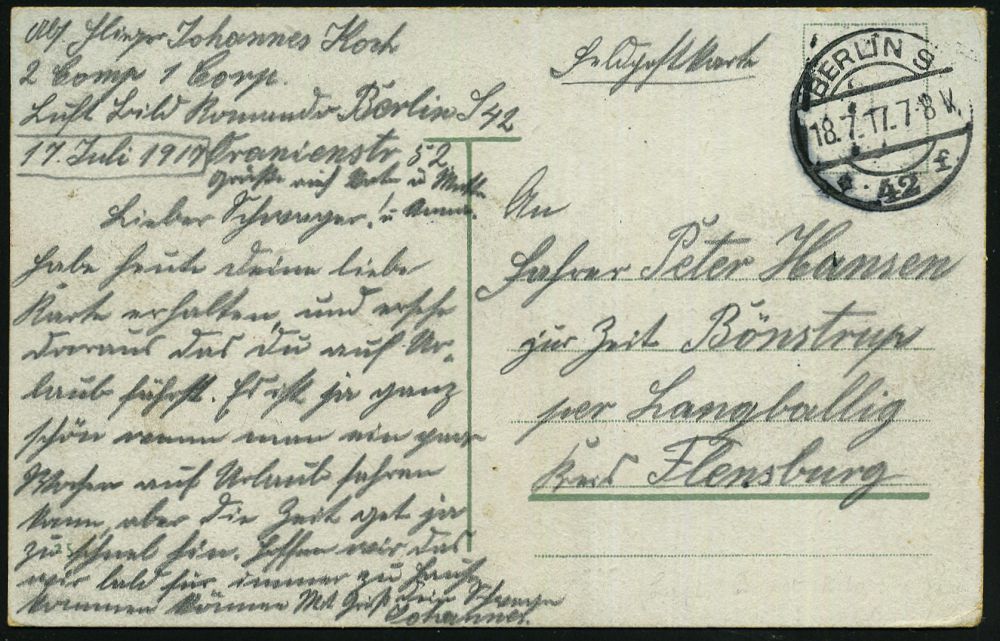 Abs. Flieger Johannes Koch
2 Comp 1 Corp.
Luft Bild Komando Berlin S 42
17. Juli 1917 Oranienstr 52
Grüße auch Vater u Mutter
Lieber Schwager! u Anna.
Habe heute deine liebe
Karte erhalten, und ersehe
daraus das du auf Ur-
laub fährst. Es ist ja ganz
schön wenn man ein paar
Wochen auf Urlaub fahren
kann, aber die Zeit get ja
zu schnel hin. Hoffen wir das
wir bald für immer zu Hause
kommen können Mit Gruß dein Schwager
Johannes.
Feldpostkarte
BERLIN S
18.7.17.7-8 V.
* 42 f.
An
Fahrer Peter Hansen
zur Zeit Bönstrup
per Langballig
Kreis Flensburg